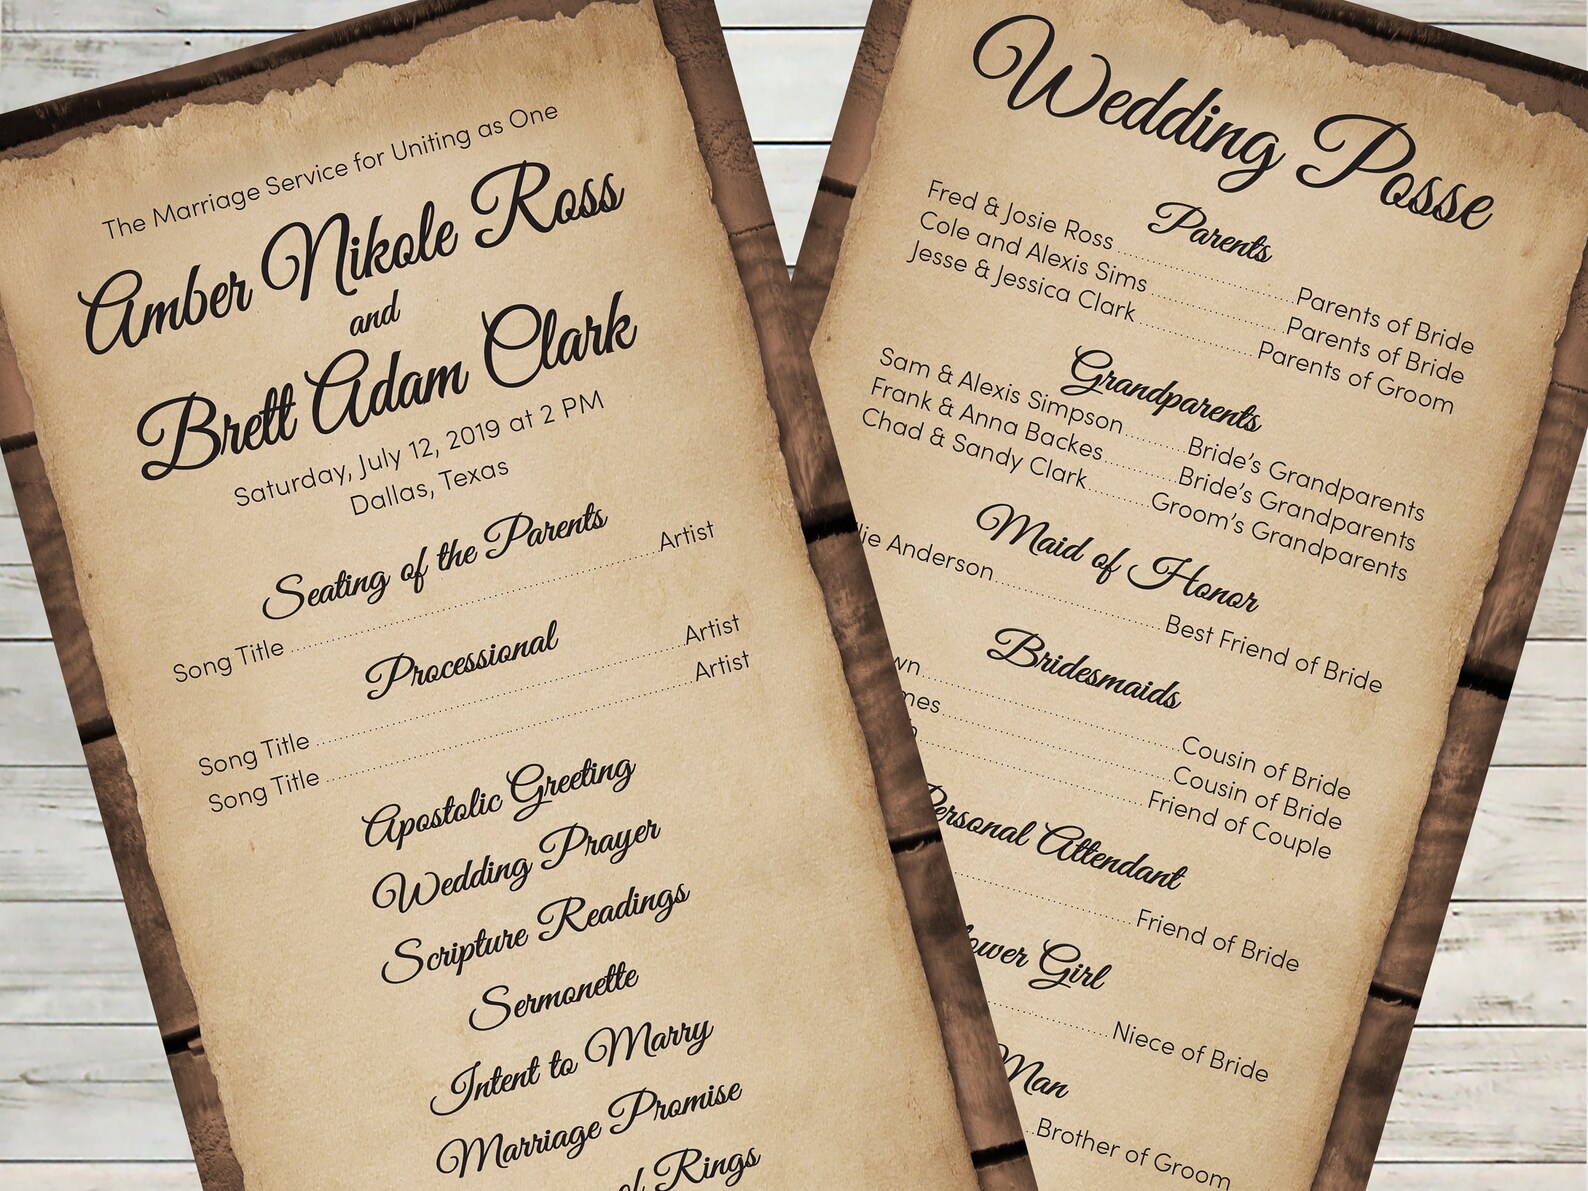 The Marriage Service for Uniting as One
Amber Nikole Ross
and
Brett Adam Clark
Saturday, July 12, 2019 at 2 PM
Dallas, Texas
Seating of the Parents
Song Title Artist
Processional
Song Title Artist
Song Title Artist
Apostolic Greeting
Wedding Prayer
Scripture Readings
Sermonette
Intent to Marry
Marriage Promise
of Rings
Wedding Posse
Parents
Fred & Josie Ross Parents of Bride
Cole and Alexis Sims Parents of Bride
Jesse & Jessica Clark Parents of Groom
Grandparents
Sam & Alexis Simpson Bride's Grandparents
Frank & Anna Backes Bride's Grandparents
Chad & Sandy Clark Groom's Grandparents
Maid of Honor
Anderson Best Friend of Bride
Bridesmaids
Cousin of Bride
Cousin of Bride
Friend of Couple
Personal Attendant
Friend of Bride
Girl
Niece of Bride
Man
Brother of Groom